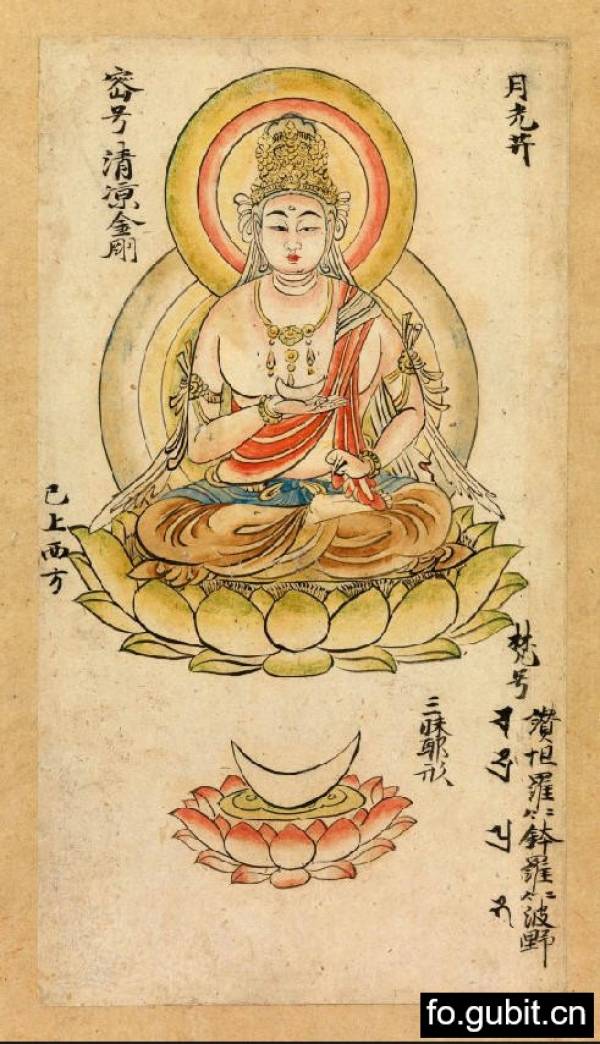 月光𦬇
密号清凉金剛
已上西方
梵号
讃怛羅二合鉢羅二合波野
三昧耶形
fo.gubit.cn